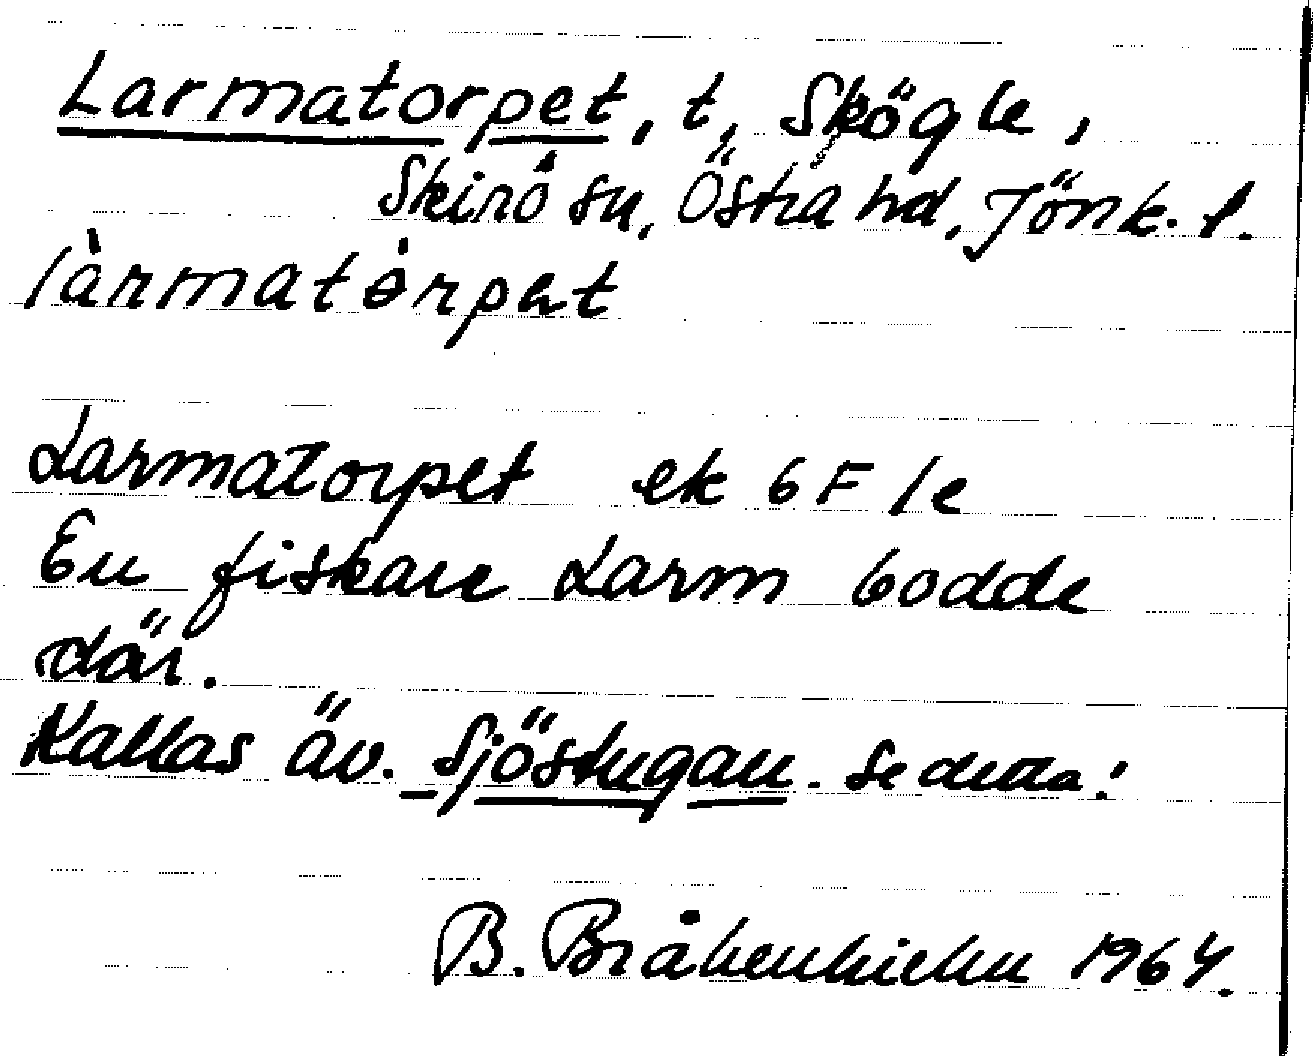 Larmatorpet, t, Skögle,
Skirö sn, Östra hd, Jönk. l.
làrmatórpet
Larmatorpet ek 6 F 1e
En fiskare Larm bodde
där.
Kallas äv. Sjöstugan. Se detta!
B. 1964.